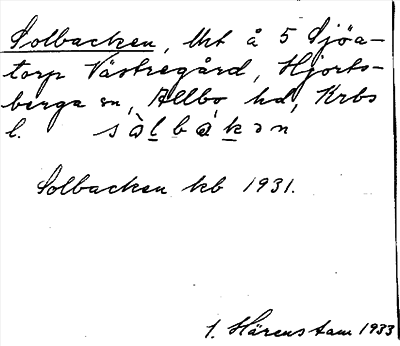 Solbacken, lht å 5 Sjöa-
torp Västregård, Hjorts-
berga sn, Allbo hd, Krbs
l. sòlbákən
Solbacken kb 1931.
Härenstam 1933